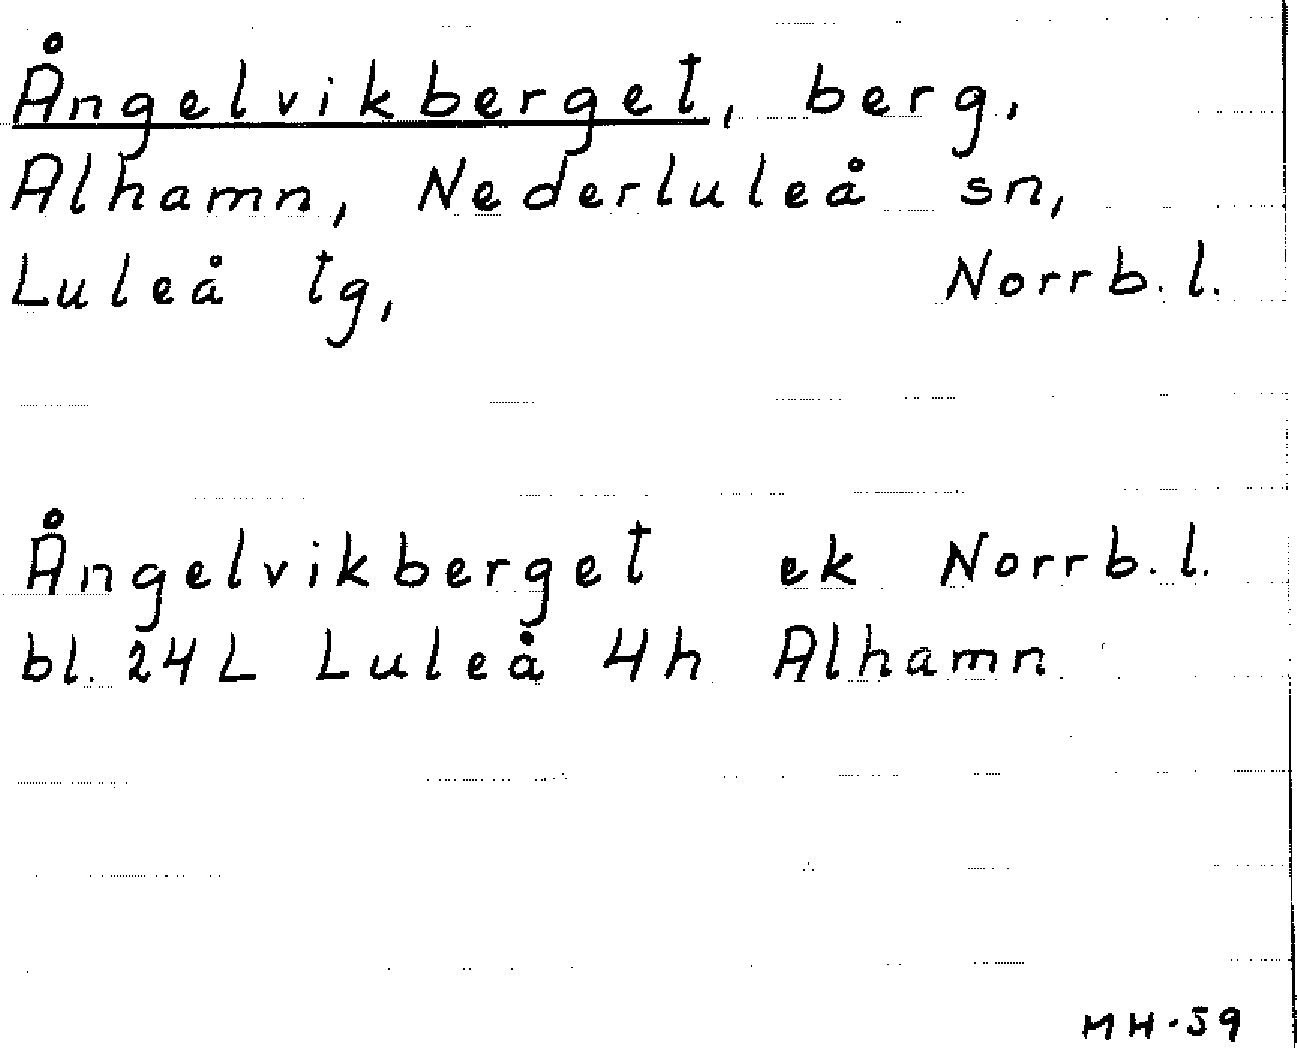 Ångelvikberget, berg,
Alhamn, Nederluleå sn,
Luleå tg, Norrb. l.
Ångelvikberget ek Norrb. l.
bl. 24L Luleå 4h Alhamn
MH-59